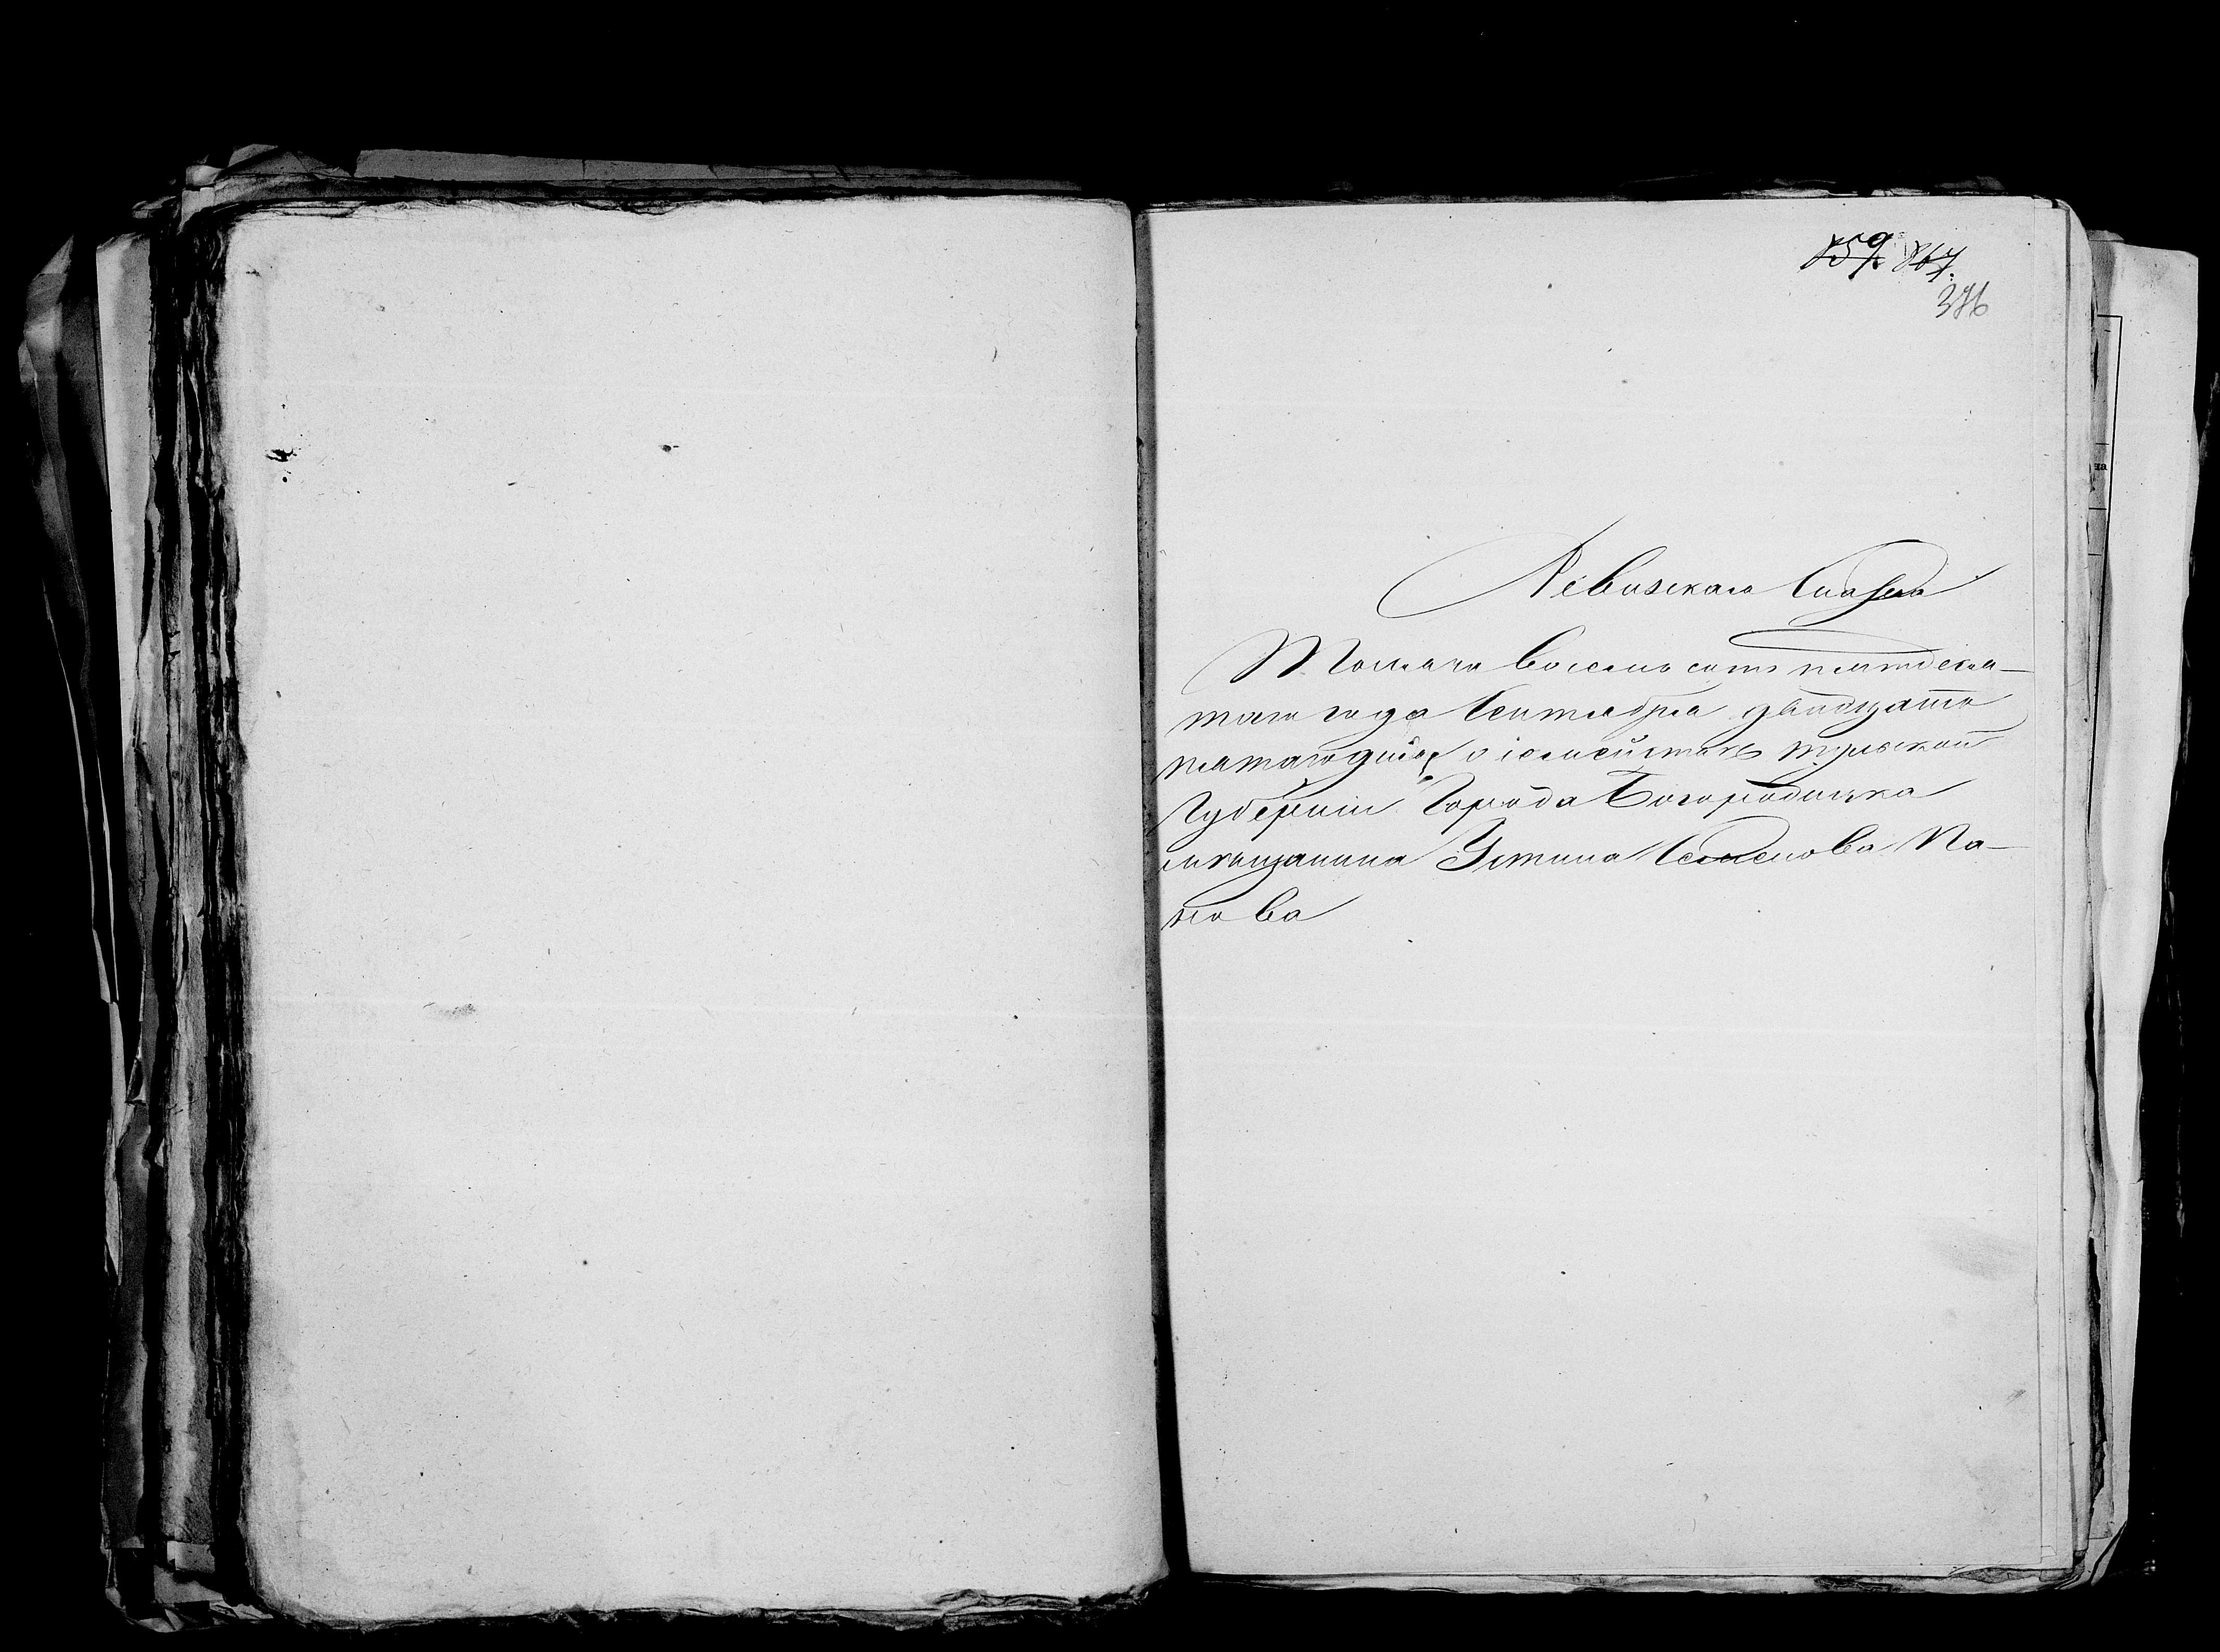 859. 867.
376
Ревизская Сказка
Тысяча восемь сотъ пятьдеся-
таго года Сентября двадцать
пятаго дня о семействѣ тульской
Губерніи Города Богородицка
мѣщанина Устина Семенова По-
пова